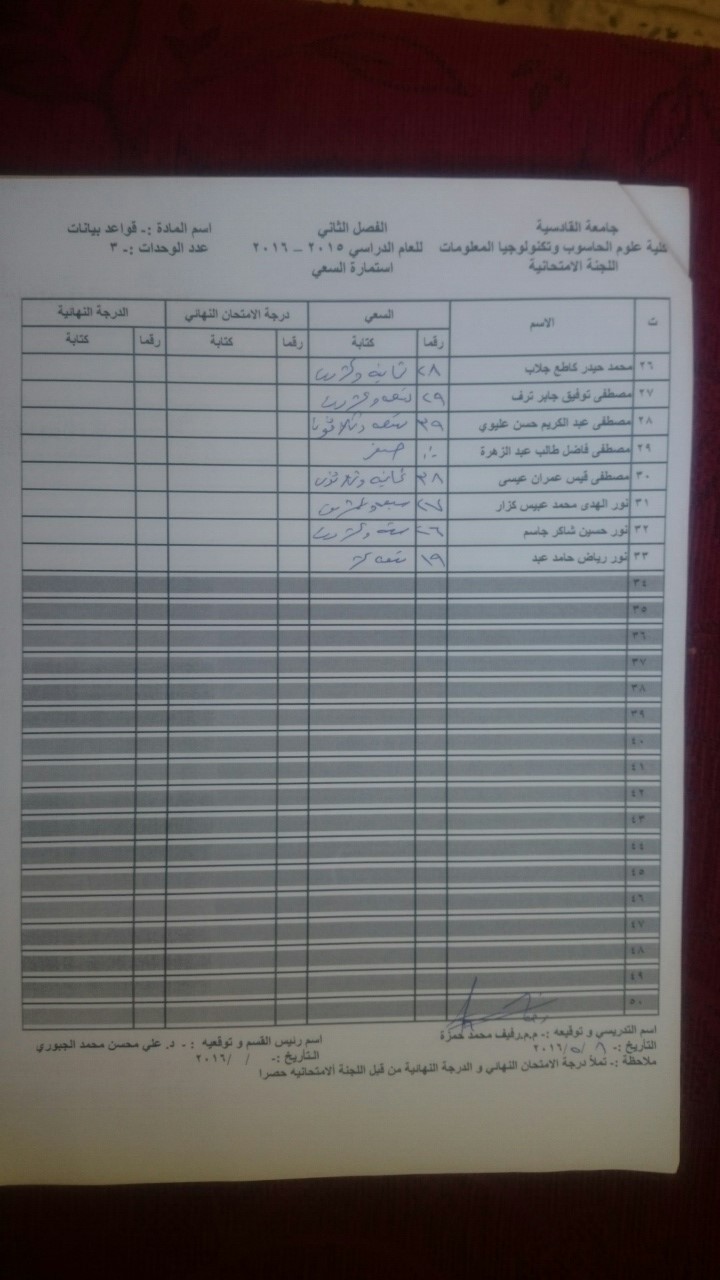 جامعة القادسية الفصل الثاني اسم المادة :- قواعد بيانات
كلية علوم الحاسوب وتكنولوجيا المعلومات للعام الدراسي ٢٠١٥ – ٢٠١٦ عدد الوحدات :- ٣
اللجنة الامتحانية استمارة السعي
ت الاسم السعي درجة الامتحان النهائي الدرجة النهائية
رقما كتابة رقما كتابة رقما كتابة
٢٦ محمد حيدر كاطع جلاب ٢٨ ثمانية وعشرون
٢٧ مصطفى توفيق جابر ترف ٢٩ تسعة وعشرون
٢٨ مصطفى عبد الكريم حسن عليوي ٣٩ تسعة وثلاثون
٢٩ مصطفى فاضل طالب عبد الزهرة صفر
٣٠ مصطفى قيس عمران عيسى ٣٨ ثمانية وثلاثون
٣١ نور الهدى محمد عبيس كزار ٢٧ سبعة وعشرون
٣٢ نور حسين شاكر جاسم ٢٦ ستة وعشرون
٣٣ نور رياض حامد عبد ١٩ تسعة عشر
٣٤
٣٥
٣٦
٣٧
٣٨
٣٩
٤٠
٤١
٤٢
٤٣
٤٤
٤٥
٤٦
٤٧
٤٨
٤٩
٥٠
اسم التدريسي و توقيعه :- م.م.رفيف محمد حمزة اسم رئيس القسم و توقعيه :- د. علي محسن محمد الجبوري
التأريخ :- ٩ /٥ /٢٠١٦ التأريخ :- / /٢٠١٦
ملاحظة :- تملأ درجة الامتحان النهائي و الدرجة النهائية من قبل اللجنة ألامتحانيه حصرا